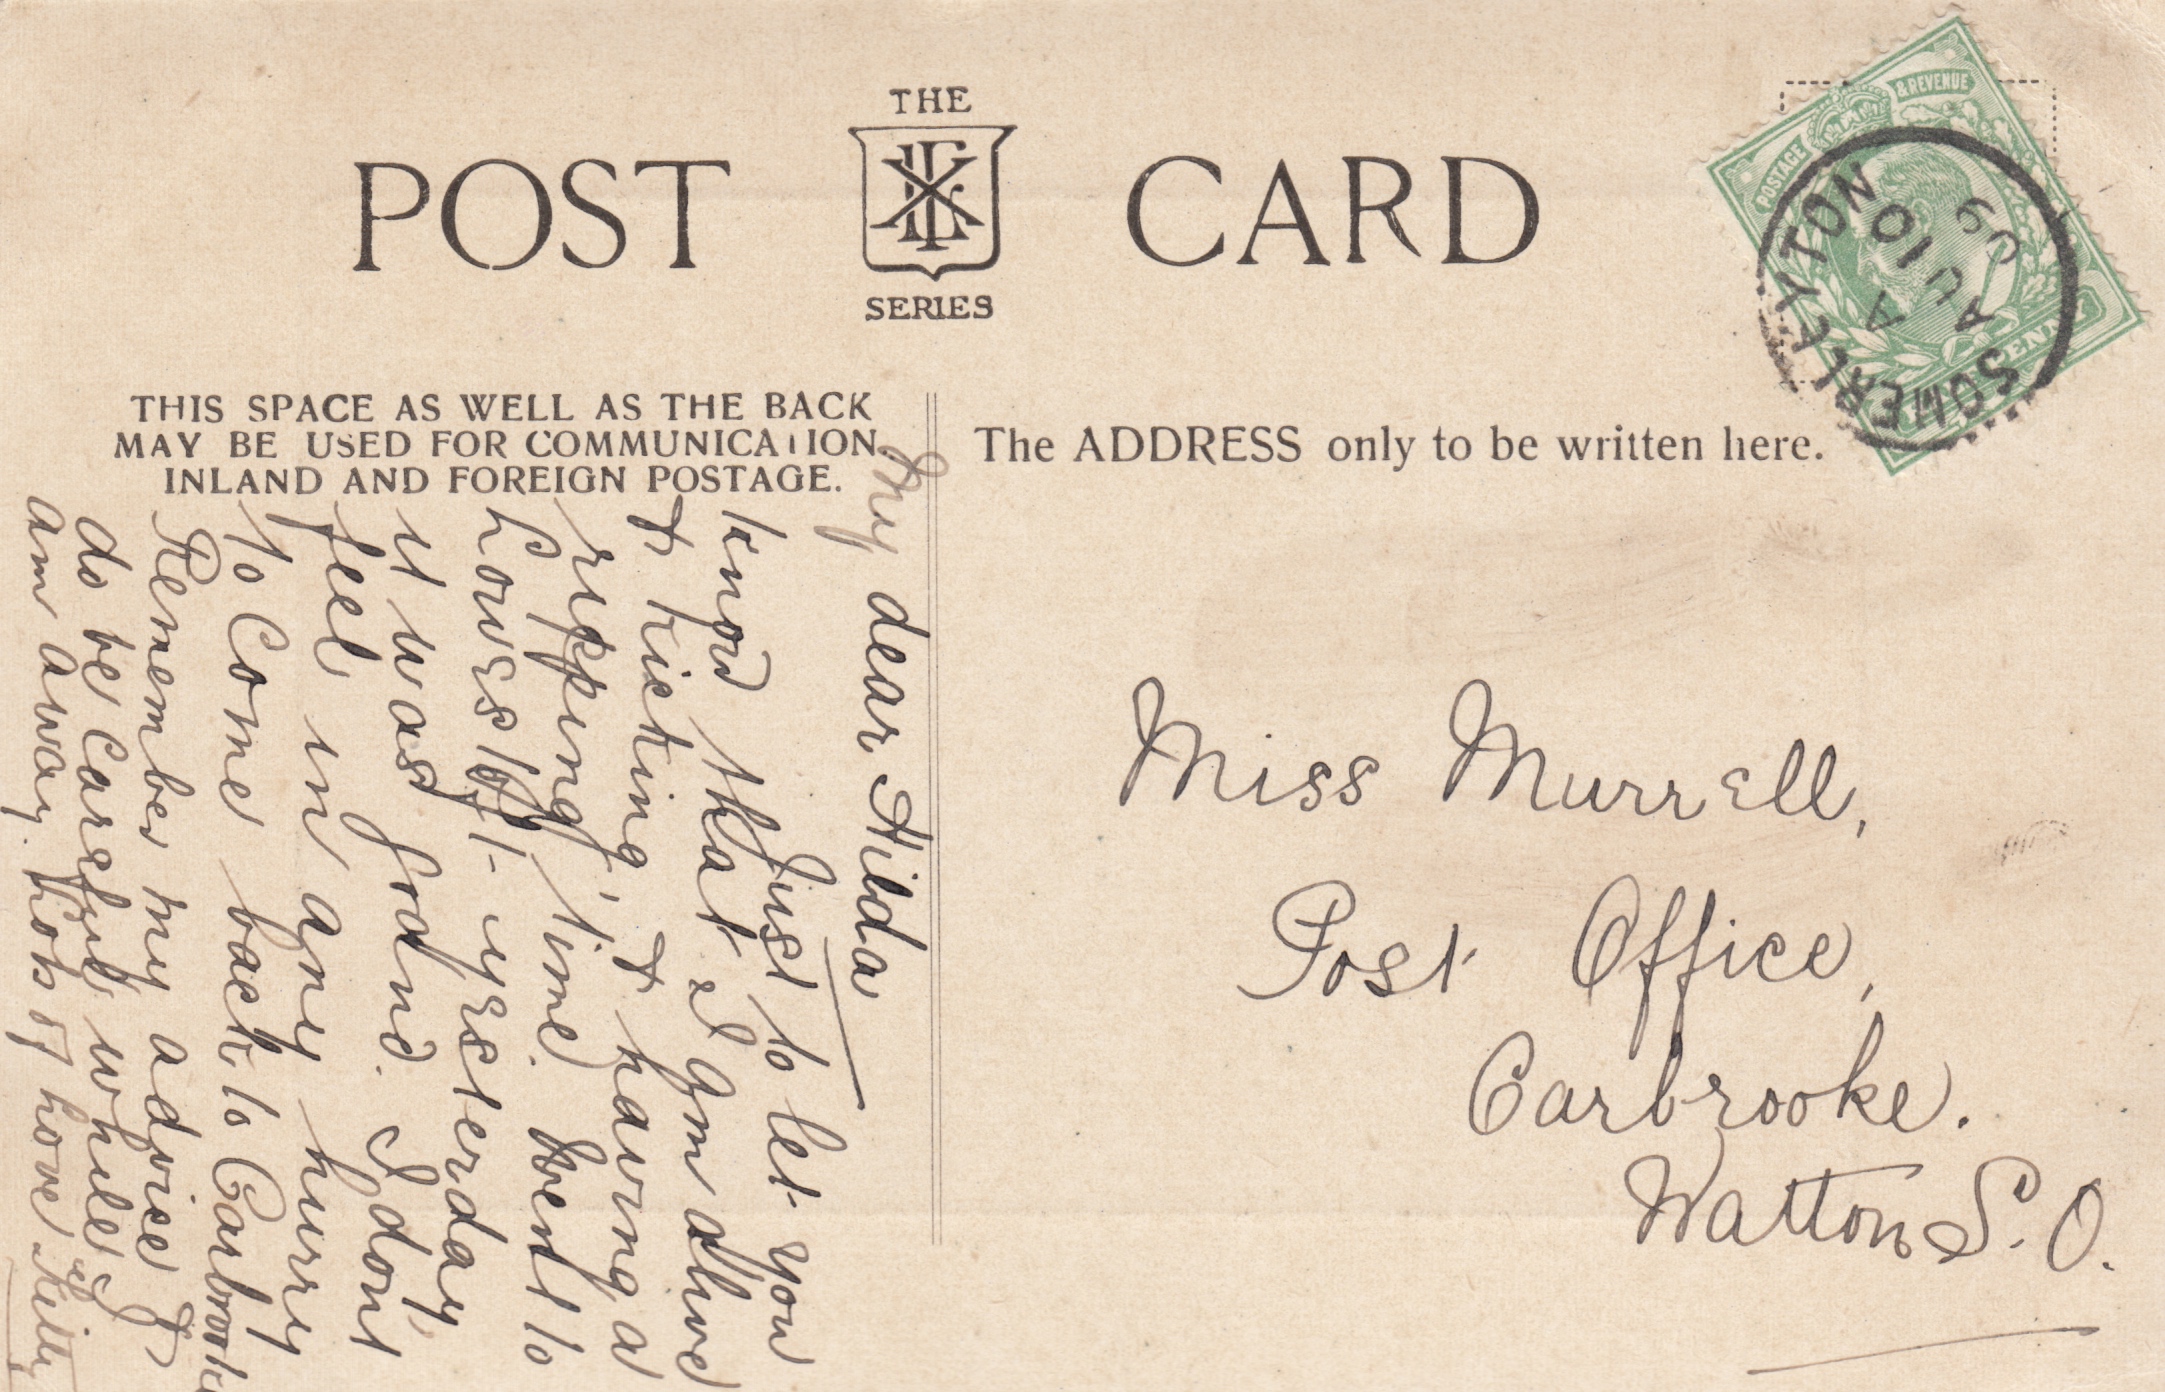 THE
POST CARD
SERIES
POSTAGE & REVENUE
PENNY
SOMERLEYTON
A
AU 10
09
THIS SPACE AS WELL AS THE BACK
MAY BE USED FOR COMMUNICATION
INLAND AND FOREIGN POSTAGE.
The ADDRESS only to be written here.
My dear Hilda
Just to let you
know that I am alive
& kicking & having a
ripping time. Went to
Lowestoft yesterday,
it was grand. I dont
feel in any hurry
to Come back to Carbrooke
Remember my advice &
do be Careful while I
am away. Lots of love Kitty
Miss Murrell,
Post Office,
Carbrooke.
Watton S.O.